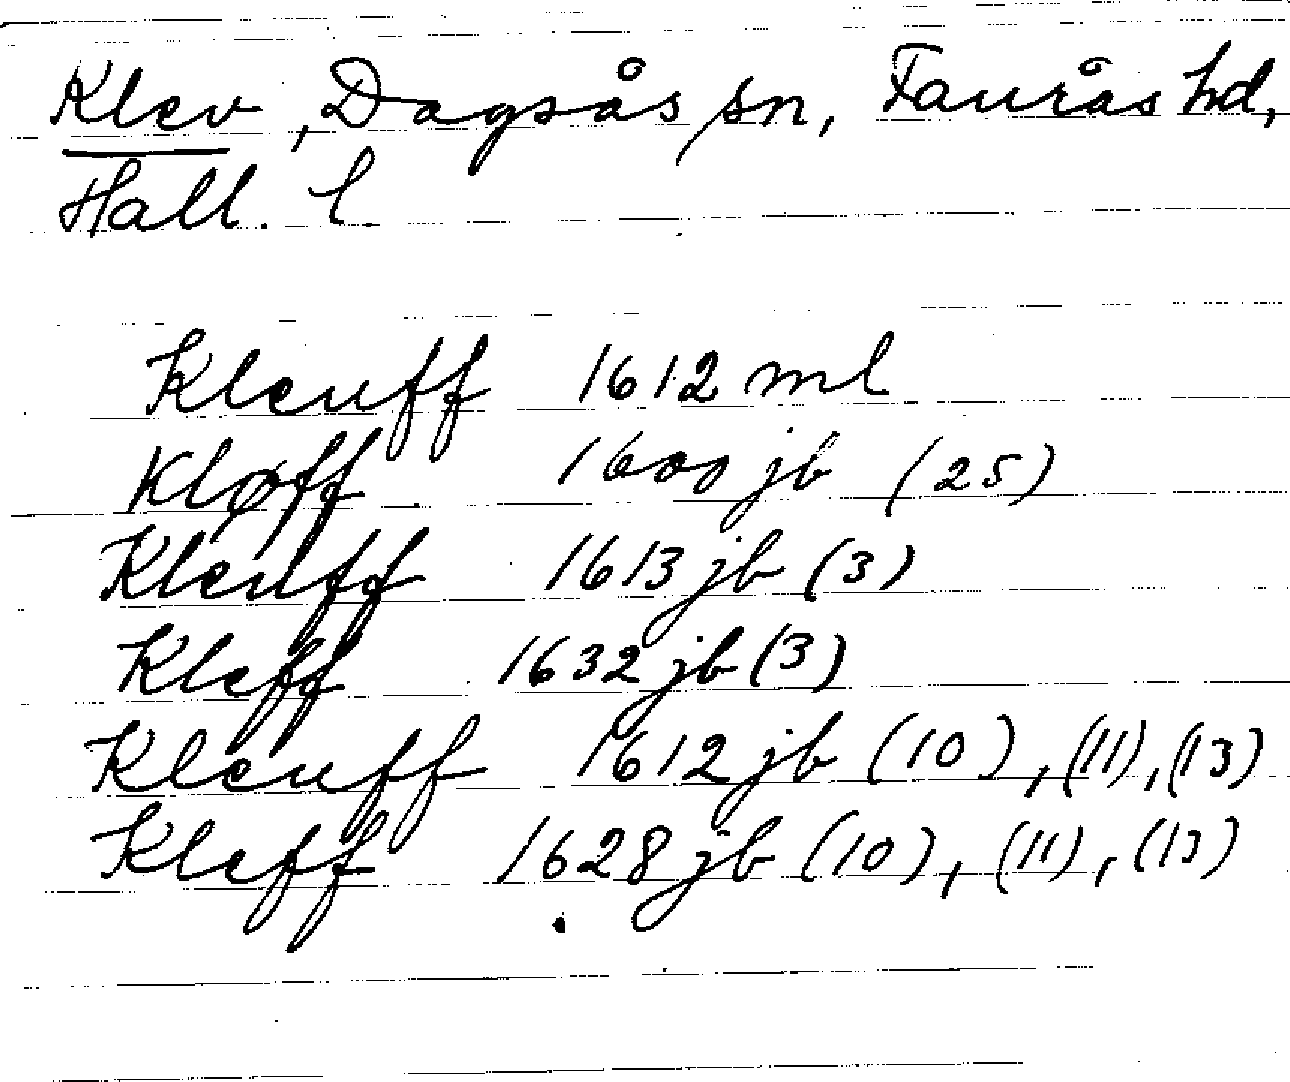 Klev, Dagsås sn, Faurås hd,
Hall. l.
Kleuff 1612 ml
Kløff 1600 jb (25)
Kleuff 1613 jb (3)
Kleff 1632 jb (3)
Kleuff 1612 jb (10), (11), (13)
Kleff 1628 jb (10), (11), (13)